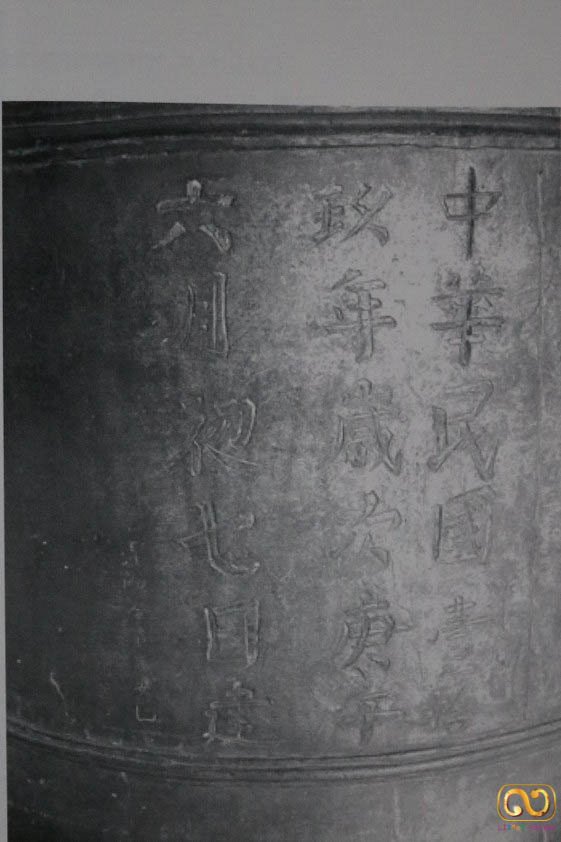 中華民國肆拾
玖年歲次庚子
六月初七日立